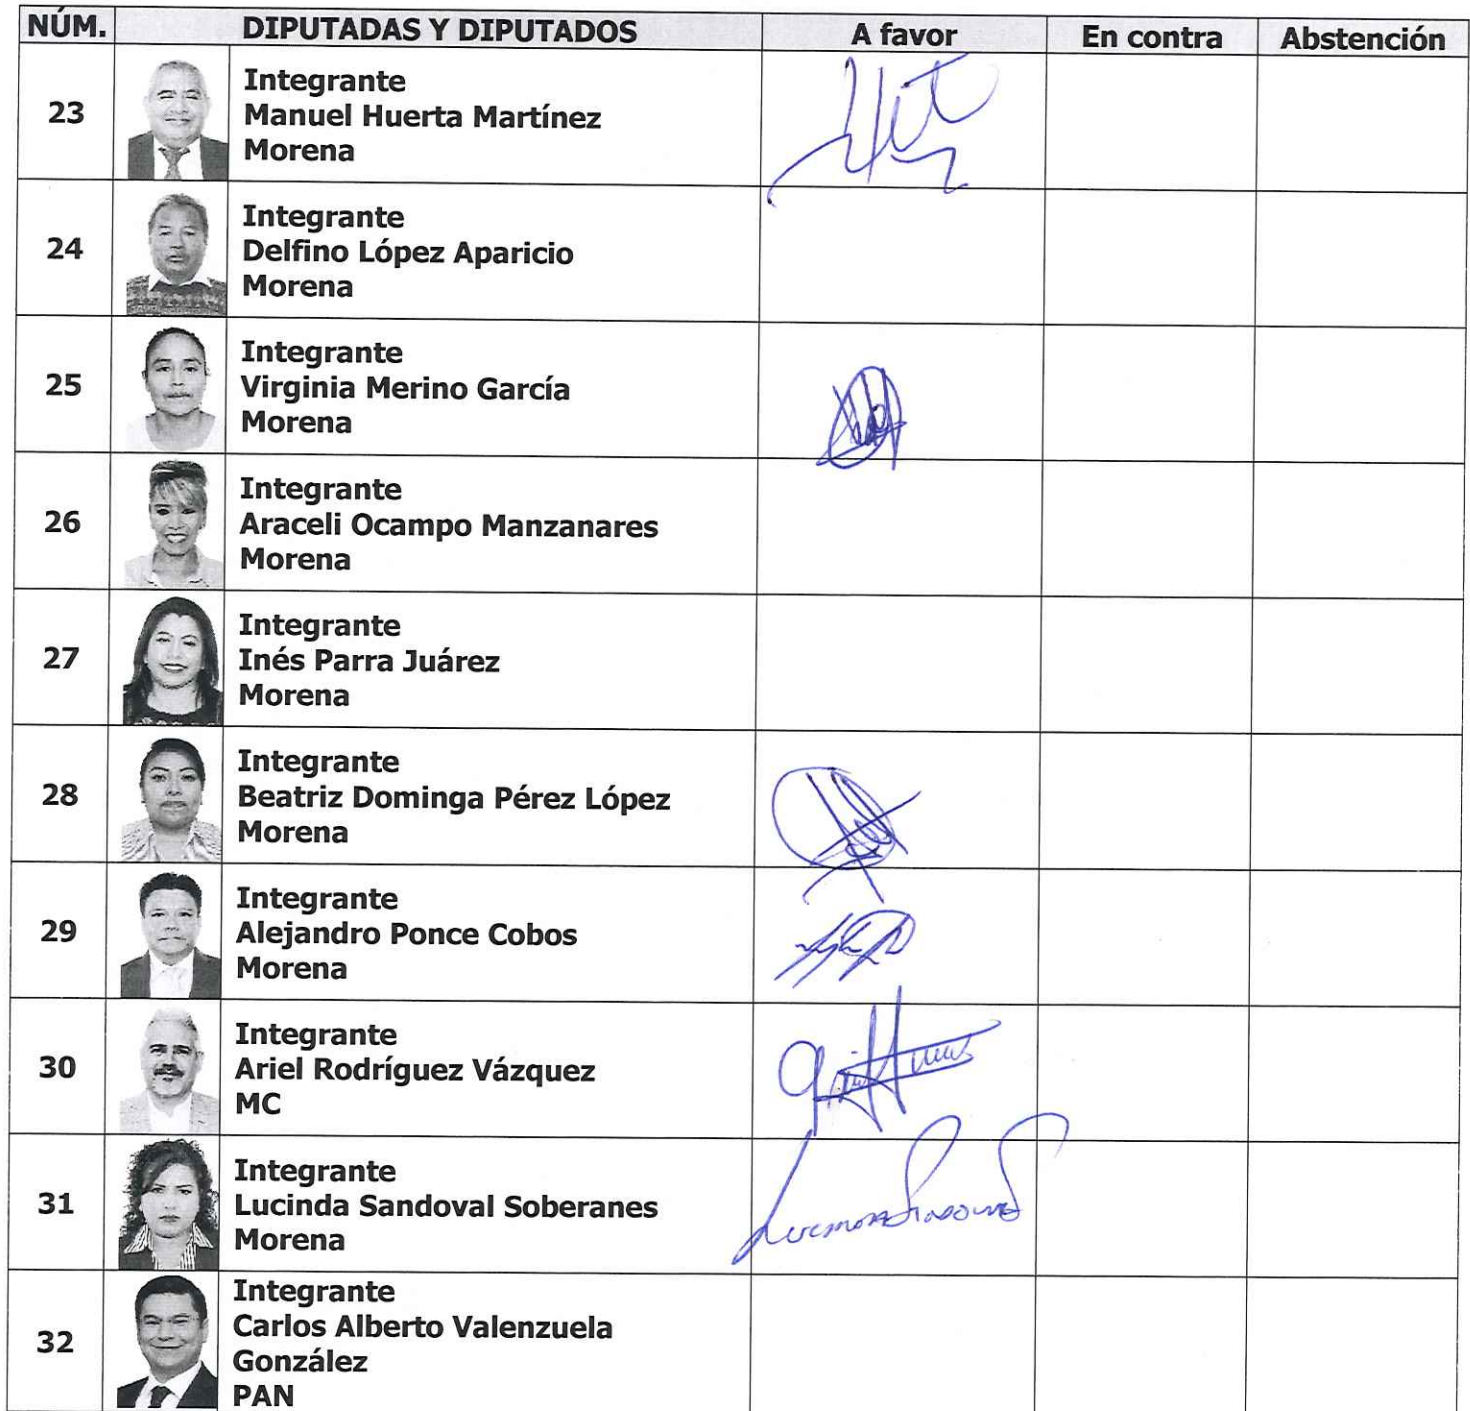 NÚM. DIPUTADAS Y DIPUTADOS A favor En contra Abstención
23
Integrante
Manuel Huerta Martínez
Morena
24
Integrante
Delfino López Aparicio
Morena
25
Integrante
Virginia Merino García
Morena
26
Integrante
Araceli Ocampo Manzanares
Morena
27
Integrante
Inés Parra Juárez
Morena
28
Integrante
Beatriz Dominga Pérez López
Morena
29
Integrante
Alejandro Ponce Cobos
Morena
30
Integrante
Ariel Rodríguez Vázquez
MC
31
Integrante
Lucinda Sandoval Soberanes
Morena
32
Integrante
Carlos Alberto Valenzuela
González
PAN